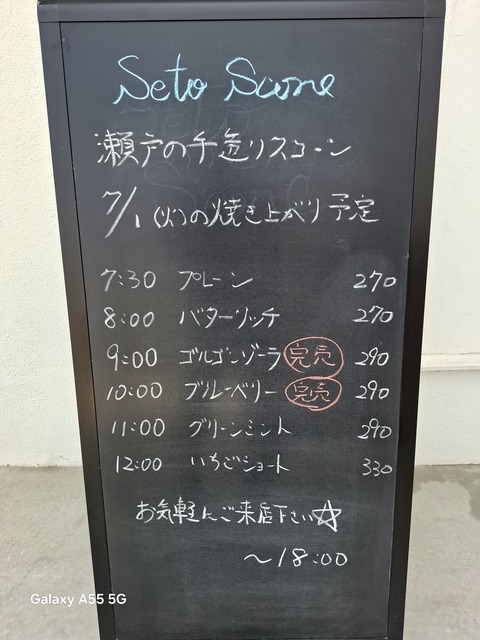 Seto Scone
瀬戸の手造りスコーン
7/1(火)の焼き上がり予定
7:30 プレーン 270
8:00 バターリッチ 270
9:00 ゴルゴンゾーラ 完売 290
10:00 ブルーベリー 完売 290
11:00 グリーンミント 290
12:00 いちごショート 330
お気軽にご来店下さい☆
〜18:00
Galaxy A55 5G